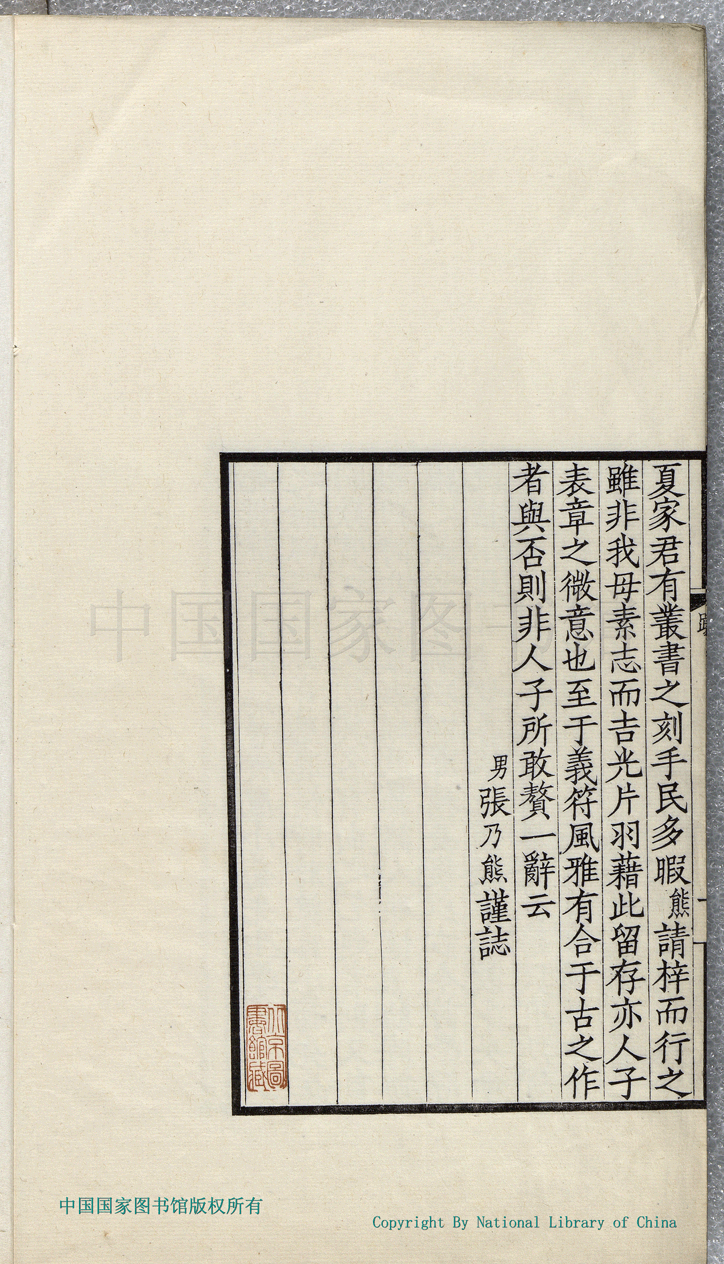 夏家君有叢書之刻手民多暇熊請梓而行之
雖非我母素志而吉光片羽藉此留存亦人子
表章之微意也至于義符風雅有合于古之作
者與否則非人子所敢贅一辭云
男張乃熊謹誌
北京圖書館藏
中国国家图书
中国国家图书馆版权所有
Copyright By National Library of China